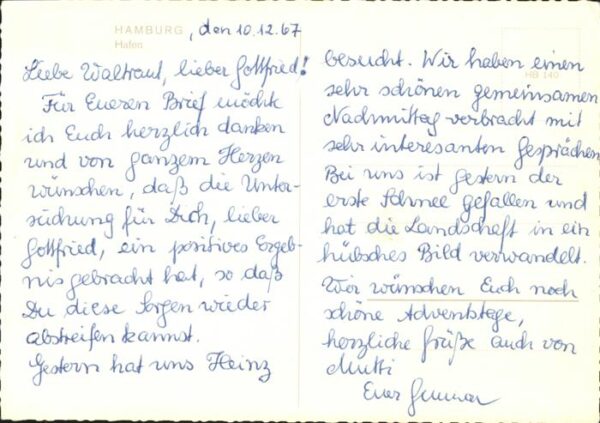 HAMBURG, den 10.12.67
Hafen
Liebe Waltraut, lieber Gottfried!
Für Eueren Brief möchte
ich Euch herzlich danken
und von ganzem Herzen
wünschen, daß die Unter-
suchung für Dich, lieber
Gottfried, ein positives Ergeb-
nis gebracht hat, so daß
Du diese Sorgen wieder
abstreifen kannst.
Gestern hat uns Heinz
HB 149
besucht. Wir haben einen
sehr schönen gemeinsamen
Nachmittag verbracht mit
sehr interesanten Gesprächen
Bei uns ist gestern der
erste Schnee gefallen und
hat die Landschaft in ein
hübsches Bild verwandelt.
Wir wünschen Euch noch
schöne Adventstage,
herzliche Grüße auch von
Mutti
Euer